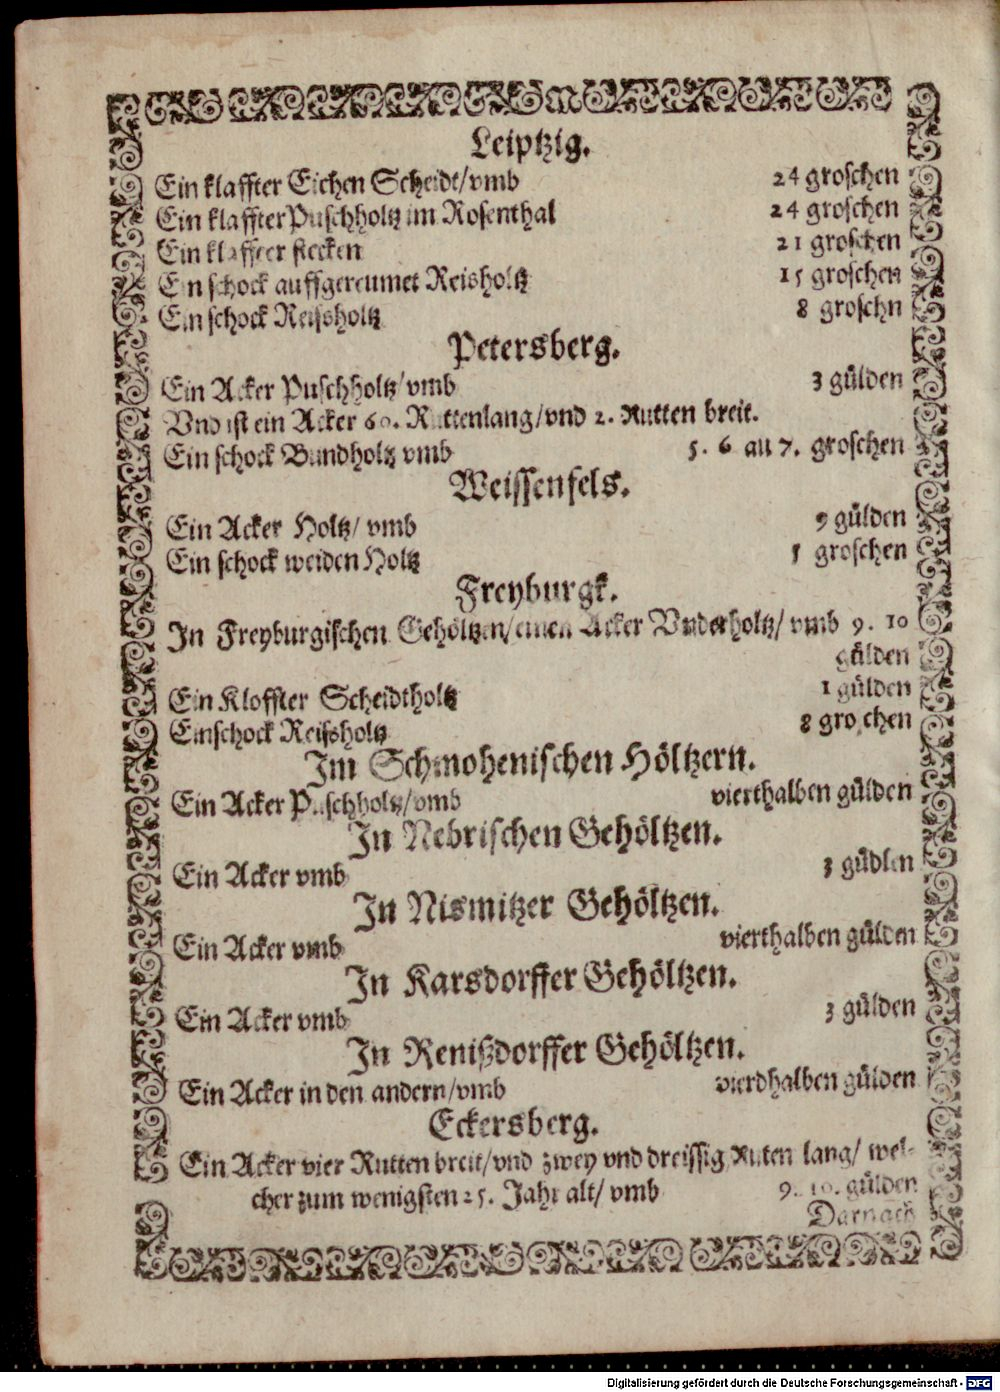 Leiptzig.
Ein klaffter Eichen Scheidt/vmb 24 groschen
Ein klaffter Puschholtz im Rosenthal 24 groschen
Ein klaffter stecken 21 groschen
Ein schock auffgereumet Reisholtz 15 groschen
Ein schock Reissholtz 8 groschn
Petersberg.
Ein Acker Puschholtz/vmb 3 gülden
Vnd ist ein Acker 60. Ruttenlang/vnd 2. Rutten breit.
Ein schock Bundholtz vmb 5. 6 auch 7. groschen
Weissenfels.
Ein Acker Holtz/ vmb 9 gülden
Ein schock weiden Holtz 5 groschen
Freyburgk.
In Freyburgischen Gehöltzen/einen Acker Vnderholtz/ vmb 9. 10
gülden
Ein Kloffter Scheidtholtz 1 gülden
Einschock Reissholtz 8 groschen
Im Schmohenischen Höltzern.
Ein Acker Puschholtz/vmb vierthalben gülden
In Nebrischen Gehöltzen.
Ein Acker vmb 3 güdlen
In Nismitzer Gehöltzen.
Ein Acker vmb vierthalben gülden
In Karsdorffer Gehöltzen.
Ein Acker vmb 3 gülden
In Renißdorffer Gehöltzen.
Ein Acker in den andern/vmb vierdhalben gülden
Eckersberg.
Ein Acker vier Rutten breit/vnd zwey vnd dreissig Ruten lang/ wel-
cher zum wenigsten 25. Jahr alt/ vmb 9. 10. gülden
Darnach
Digitalisierung gefördert durch die Deutsche Forschungsgemeinschaft - DFG